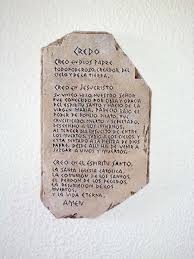 CREDO
CREO EN DIOS PADRE
TODOPODEROSO, CREADOR DEL
CIELO Y DE LA TIERRA.
CREO EN JESUCRISTO
SU UNICO HIJO NUESTRO SEÑOR
FUE CONCEBIDO POR OBRA Y GRACIA
DEL ESPIRITU SANTO Y NACIO DE LA
VIRGEN MARIA, PADECIO BAJO EL
PODER DE PONCIO PILATO, FUE
CRUCIFICADO, MUERTO Y SEPULTADO,
DESCENDIO A LOS INFIERNOS,
AL TERCER DIA RESUCITO DE ENTRE
LOS MUERTOS, SUBIO A LOS CIELOS Y
ESTA SENTADO A LA DIESTRA DE DIOS
PADRE. DESDE ALLI HA DE VENIR A
JUZGAR A VIVOS Y MUERTOS.
CREO EN EL ESPIRITU SANTO,
LA SANTA IGLESIA CATOLICA,
LA COMUNION DE LOS SANTOS,
EL PERDON DE LOS PECADOS,
LA RESURRECCION DE LOS
MUERTOS
Y LA VIDA ETERNA.
AMEN